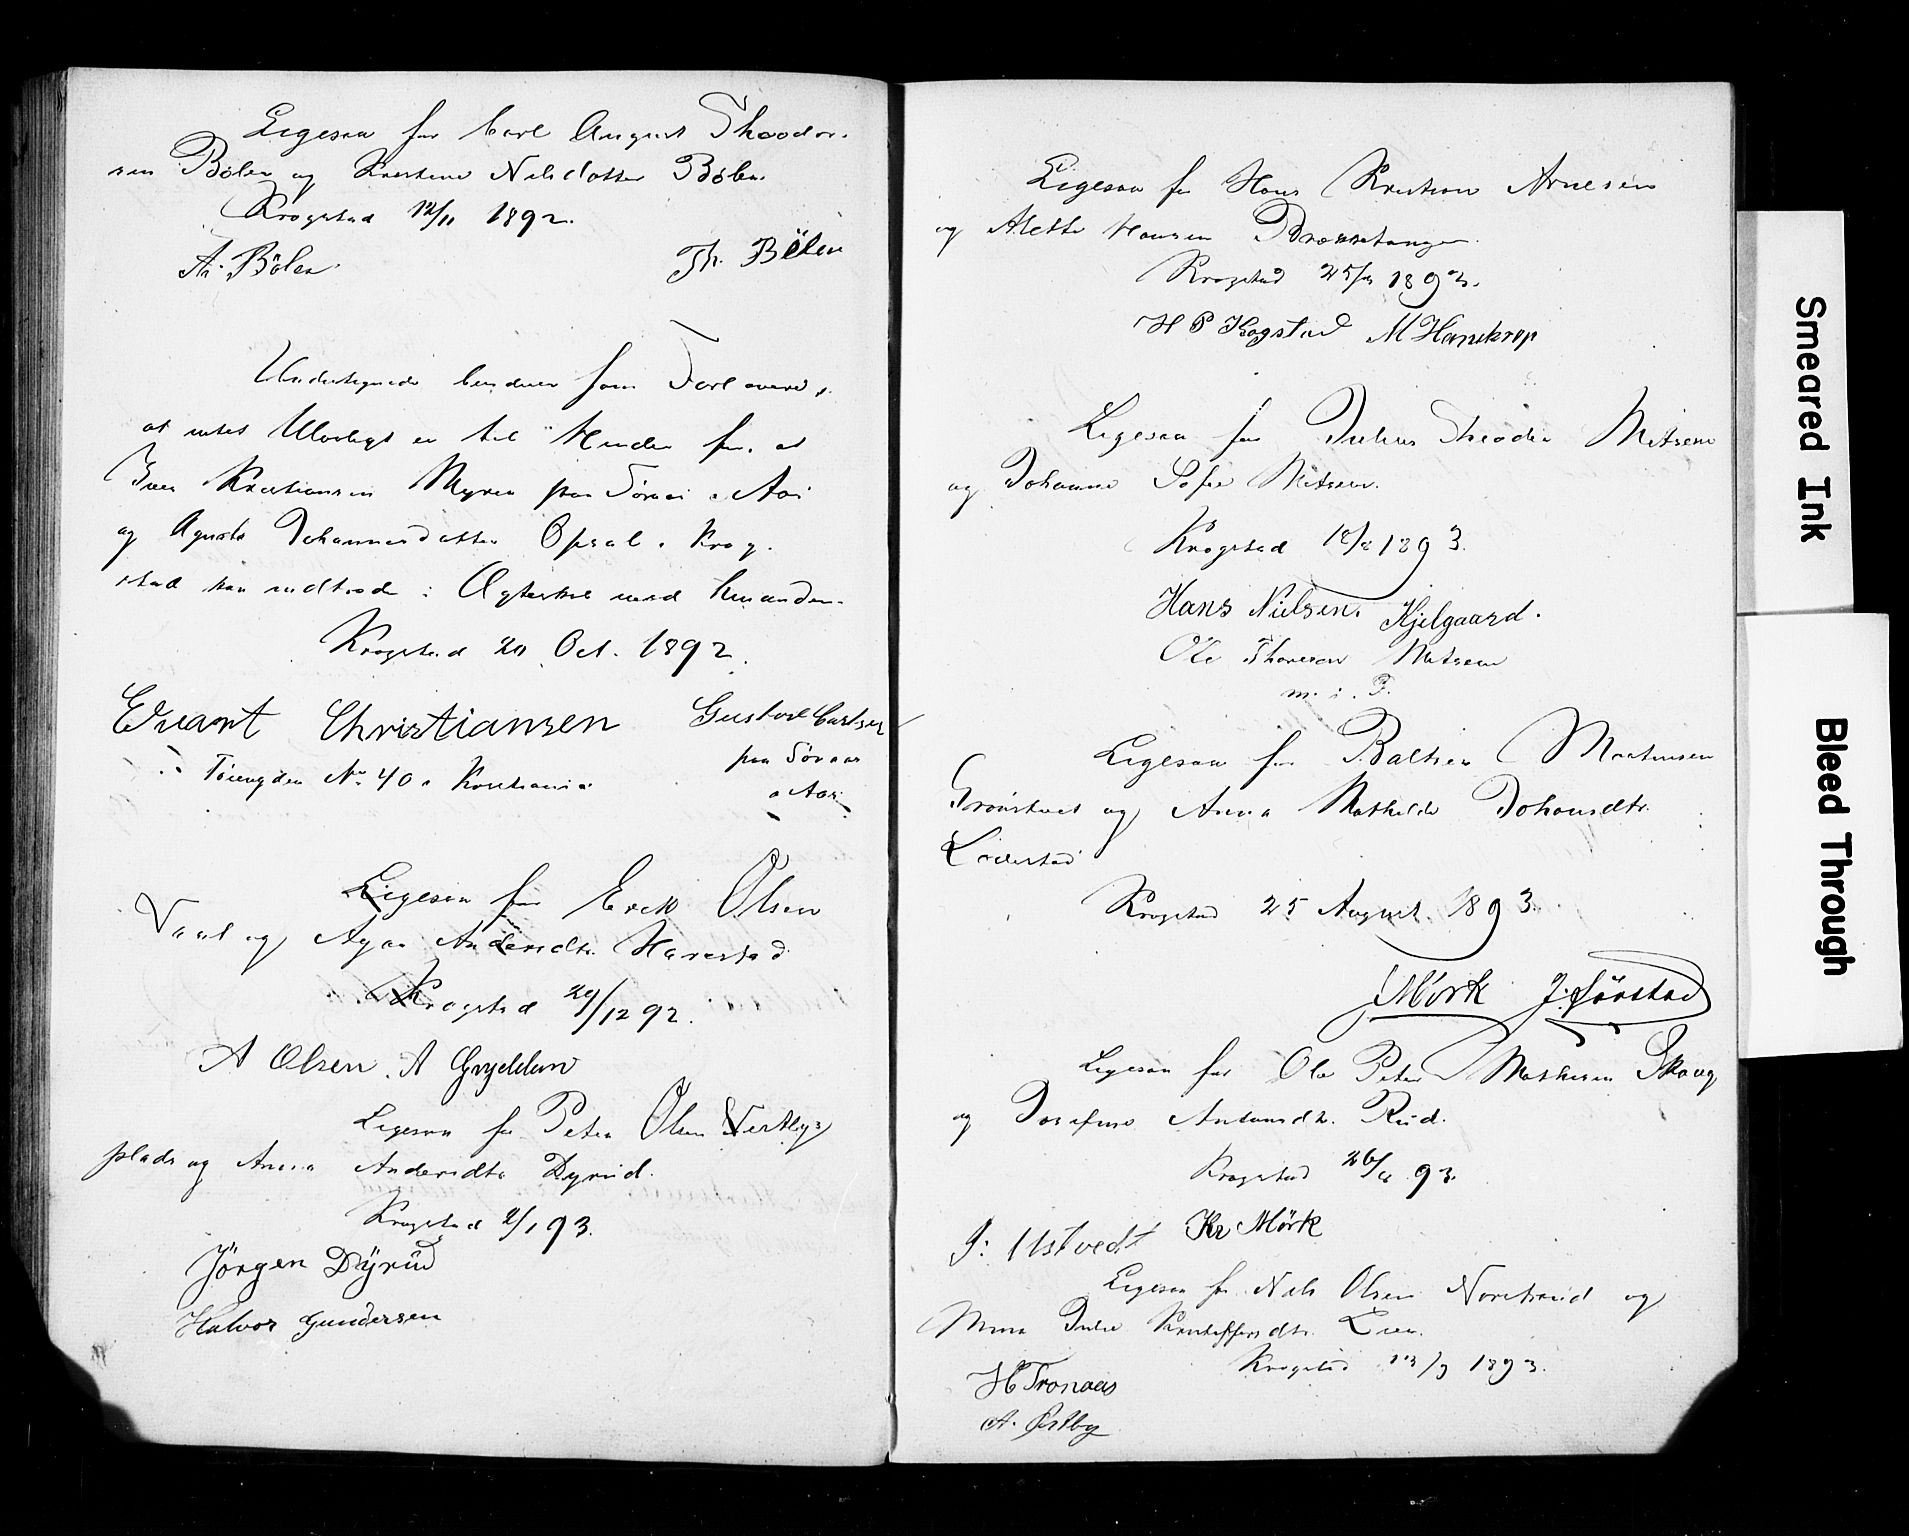 Ligesaa for Carl August Theodor-
sen Bölen og Kristine Nilsdatter Bölen.
Krogstad 12/11 1892.
A. Bölen. Th. Bölen
Undertegnede bevidner som Forlovere,
at intet Ulovligt er til Hinder for, at
Iver Kristiansen Myren paa Töraas i Aas
og Agusta Johannesdatter Opsal i Krog-
stad kan indtræde i Ægteskab med hinanden.
Krogstad 20 Oct. 1892.
Evant Christiansen Gustav Carlsen
Töiengden No 40 i Kristiania paa Söraas
i Aas
Ligesaa for Erik Olsen
Vaal og Agaa Andersdtr. Harestad
Krogstad 29/12 92.
A Olsen. A Gryddem
Ligesaa for Peter Olsen Vestbys
plads og Anna Andersdtr Dyrud.
Krogstad 2/1 93.
Jörgen Dÿrud
Halvor Gundersen
Ligesaa for Hans Kristian Arnesen
og Alette Hansen Brænetangen.
Krogstad 25/3 1893.
H P Kogstad M Hanekrop
Ligesaa for Julius Theodor Mitsem
og Johanne Sofie Mitsem.
Krogstad 18/8 1893.
Hans Nielsen. Kjelgaard.
Ole Thoresen Mitsem
m. i. P.
Ligesaa for Baltser Martinsen
Grönstvet og Anna Mathilde Johansdtr.
Löderstad
Krogstad 25 August 1893.
Mörk J. Sörstad
Ligesaa for Ole Peter Mathisen Skoug
og Josefine Antonsdtr. Rud.
Krogstad 26/8 93.
J: Ustvedt Kr Mörk
Ligesaa for Nils Olsen Norebraid og
Mina Julie Kristoffersdtr. Lien.
Krogstad 13/9 1893.
H Tronaas
A. Østby
Smeared Ink
Bleed Through